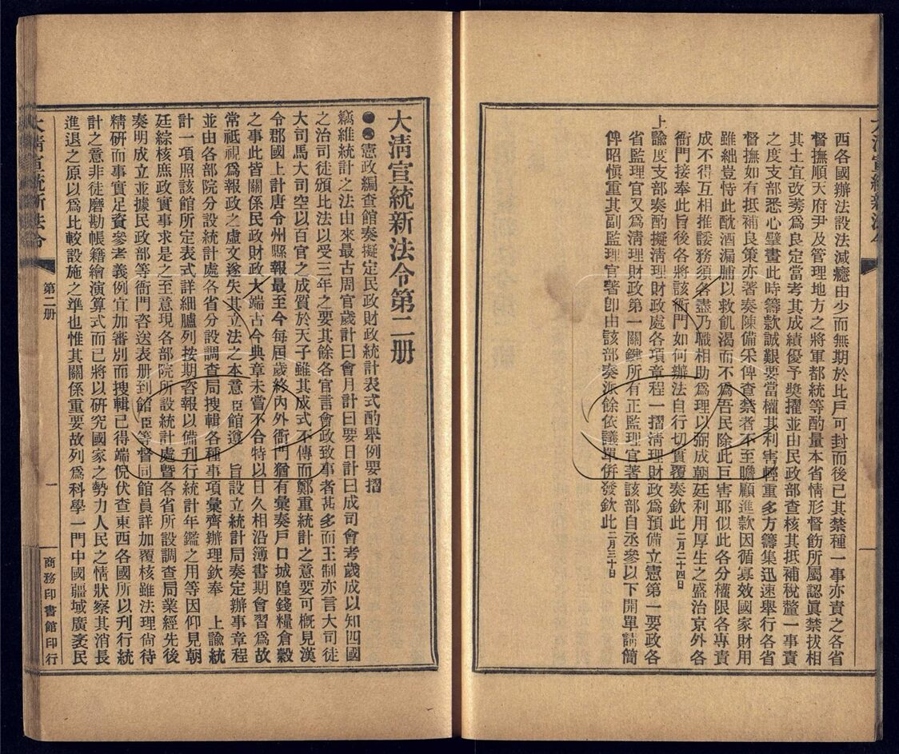 西各國辦法設法減癮由少而無期於比戶可封而後已其禁種一事亦責之各省
督撫順天府尹及管理地方之將軍都統等酌量本省情形督飭所屬認眞禁拔相
其土宜改蒡爲良定當考其成績優予奬擢並由民政部查核其抵補稅釐一事責
之度支部悉心擘畫此時籌款誠艱要當權其利害輕重多方籌集迅速舉行各省
督撫如有抵補良策亦著奏陳備采俾查禁者不至瞻顧進款因循寡效國家財用
雖絀豈恃此酖酒漏脯以救飢渴而不爲吾民除此巨害耶似此各分權限各專責
成不得互相推諉務須各盡乃職相助爲理以弼成朝廷利用厚生之盛治京外各
衙門接奉此旨後各將該衙門如何辦法自行切實覆奏欽此二月二十四日
上諭度支部奏酌擬淸理財政處各項章程一摺淸理財政爲預備立憲第一要政各
省監理官又爲淸理財政第一關鍵所有正監理官著該部自丞參以下開單請簡
俾昭愼重其副監理官著卽由該部奏派餘依議單併發欽此二月三十日
大淸宣統新法令
大淸宣統新法令第二册
憲政編查館奏擬定民政財政統計表式酌舉例要摺
竊維統計之法由來最古周官歲計曰會月計曰要日計曰成司會考歲成以知四國
之治司徒頒比法以受三年之要其餘各官言會政致事者甚多而王制亦言大司徒
大司馬大司空以百官之成質於天子雖其成式不傳而鄭重統計之意要可槪見漢
令郡國上計唐令州縣報最至今每屆歲終內外衙門猶有彙奏戶口城隍錢糧倉穀
之事此皆關係民政財政大端古今典章未嘗不合特以日久相沿簿書期會習爲故
常祗視爲報政之虛文遂失其立法之本意臣館遵 旨設立統計局奏定辦事章程
並由各部院分設統計處各省分設調查局搜輯各種事項彙齊辦理欽奉 上諭統
計一項照該館所定表式詳細臚列按期咨報以備刊行統計年鑑之用等因仰見朝
廷綜核庶政實事求是之至意現各部院所設統計處曁各省所設調查局業經先後
奏明成立並據民政部等衙門咨送表册到館臣等督同館員詳加覆核雖法理尙待
精硏而事實足資參考義例宜加審別而搜輯已得端倪伏查東西各國所以刊行統
計之意非徒磨勘帳籍繪演算式而已將以硏究國家之勢力人民之情狀察其消長
進退之原以爲比較設施之準也惟其關係重要故列爲科學一門中國疆域廣袤民
大淸宣統新法令
第二册
一
商務印書館印行